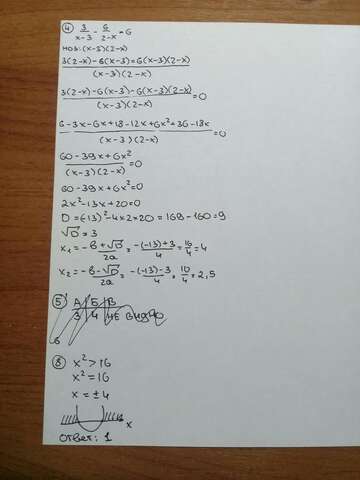 ④ 3/(x-3) - 6/(2-x) = 6
НОЗ: (x-3)(2-x)
3(2-x)-6(x-3)=6(x-3)(2-x)/(x-3)(2-x)
3(2-x)-6(x-3)-6(x-3)(2-x)/(x-3)(2-x)=0
6-3x-6x+18-12x+6x²+36-18x/(x-3)(2-x)=0
60-39x+6x²/(x-3)(2-x)=0
60-39x+6x²=0
2x²-13x+20=0
D=(-13)²-4×2×20=169-160=9
√D=3
x₁=-b+√D/2a=-(-13)+3/4=16/4=4
x₂=-b-√D/2a=-(-13)-3/4=10/4=2,5
⑤ А Б В
3 4 НЕ ВИДНО
⑧ x²>16
x²=16
x=±4
x
ответ: 1